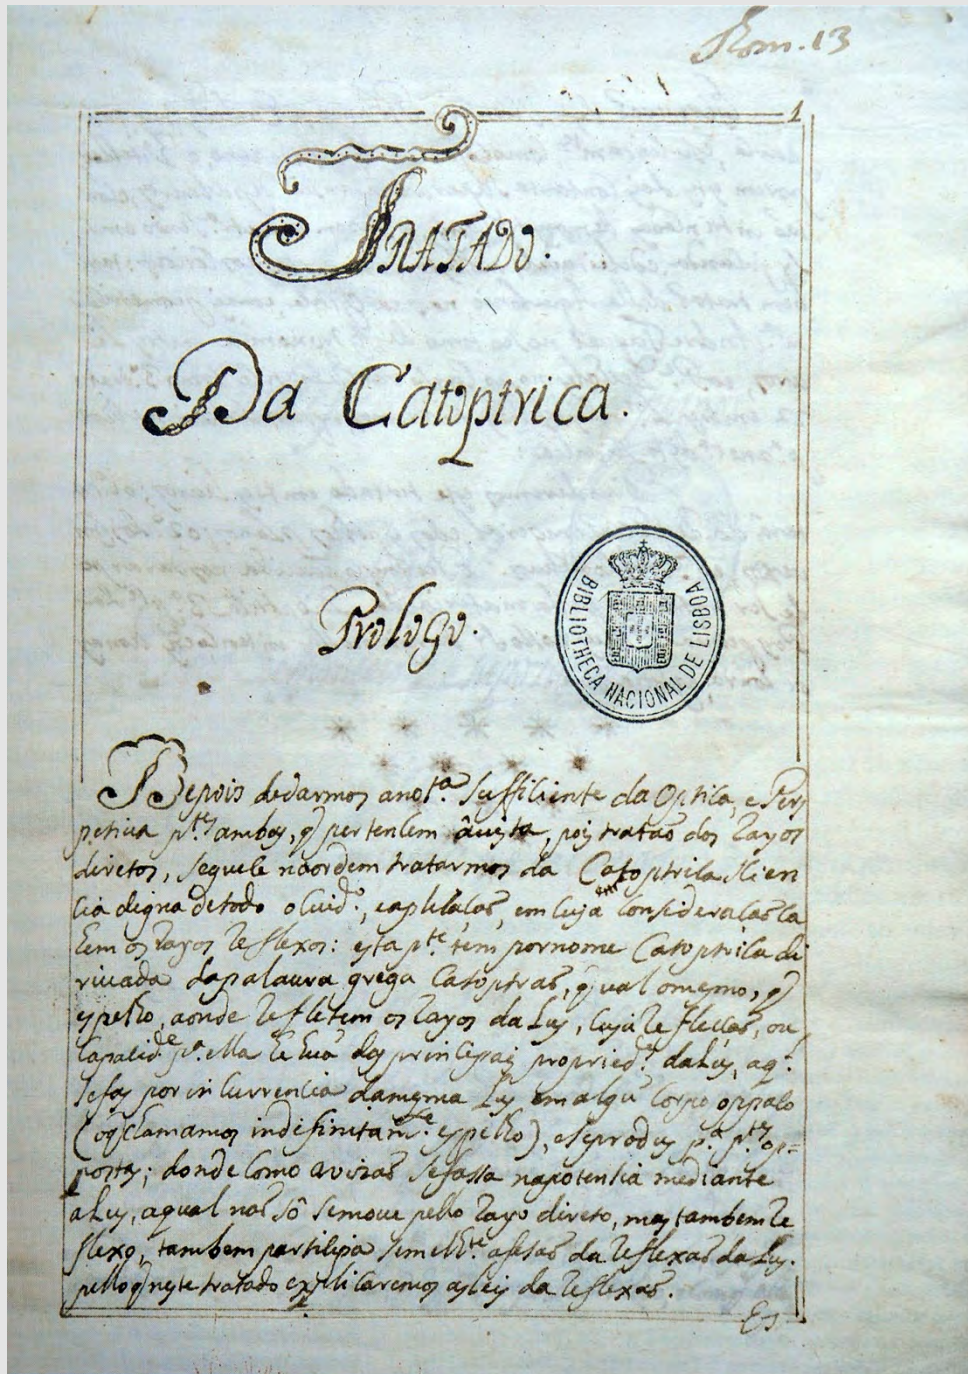 Rom. 13
1
TRATADO.
Da Catoptrica.
Prologo.
BIBLIOTHECA NACIONAL DE LISBOA
Depois dedarmos anot.ª sufficiente da Optica, e Pers
petiua p.tes ambas, q̃ pertencem âuista, pois trataõ dos rayos
diretos, seguese naordem tratarmos da Catoptrica scien
cia digna detodo o cuid.º, eaplicaçaõ, em cuja consideraçaõ ca
em os rayos reflexos: esta p.te tem pornome Catoptrica di
riuada dapalaura grega Catoptras, q̃ val omesmo, q̃
espelho, aonde refletem os rayos da Luz, cuja reflecçaõ, ou
capacid.e p.ª ella he huã das principaes propried.es daLuz, aq.
sefas por incurrencia damesma Luz em algũ corpo oppaco
(oq̃ clamamos indifinitam.te espelho), eseprodus p.ª p.tes op=
postas; donde como avizaõ sefassa napotensia mediante
aLuz, aqual naõ sô semoue pello rayo direto, mas tambem re
flexo, tambem participa semelh.te afesaõ da reflexaõ da Luz.
pelloq̃ neste tratado explicaremos asleis da reflexaõ.
Es